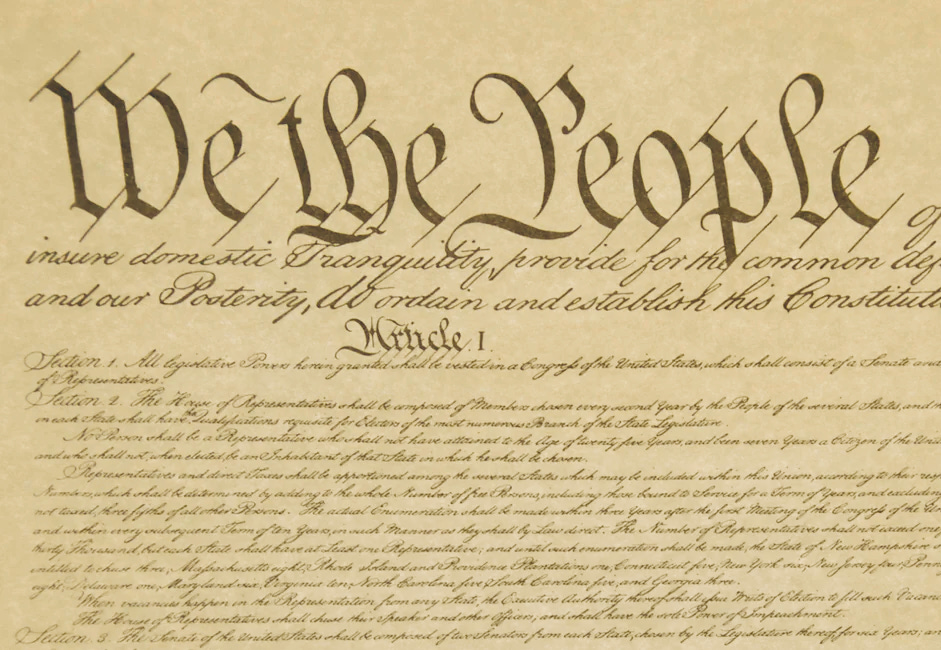 We the People of
insure domestic Tranquility, provide for the common def
and our Posterity, do ordain and establish this Constitutio
Article. I.
Section. 1. All legislative Powers herein granted shall be vested in a Congress of the United States, which shall consist of a Senate and
of Representatives.
Section. 2. The House of Representatives shall be composed of Members chosen every second Year by the People of the several States, and
in each State shall have the Qualifications requisite for Electors of the most numerous Branch of the State Legislature.
No Person shall be a Representative who shall not have attained to the Age of twenty five Years, and been seven Years a Citizen of the Unit
and who shall not, when elected, be an Inhabitant of that State in which he shall be chosen.
Representatives and direct Taxes shall be apportioned among the several States which may be included within this Union, according to their resp
Numbers, which shall be determined by adding to the whole Number of free Persons, including those bound to Service for a Term of Years, and excluding
not taxed, three fifths of all other Persons. The actual Enumeration shall be made within three Years after the first Meeting of the Congress of the Un
and within every subsequent Term of ten Years, in such Manner as they shall by Law direct. The Number of Representatives shall not exceed one f
thirty Thousand, but each State shall have at Least one Representative; and until such enumeration shall be made, the State of New Hampshire s
entitled to chuse three, Massachusetts eight, Rhode Island and Providence Plantations one, Connecticut five, New York six, New Jersey four, Penns
eight, Delaware one, Maryland six, Virginia ten, North Carolina five, South Carolina five, and Georgia three.
When vacancies happen in the Representation from any State, the Executive Authority thereof shall issue Writs of Election to fill such Vacanc
The House of Representatives shall chuse their Speaker and other Officers; and shall have the sole Power of Impeachment.
Section. 3. The Senate of the United States shall be composed of two Senators from each State, chosen by the Legislature thereof, for six Years; an